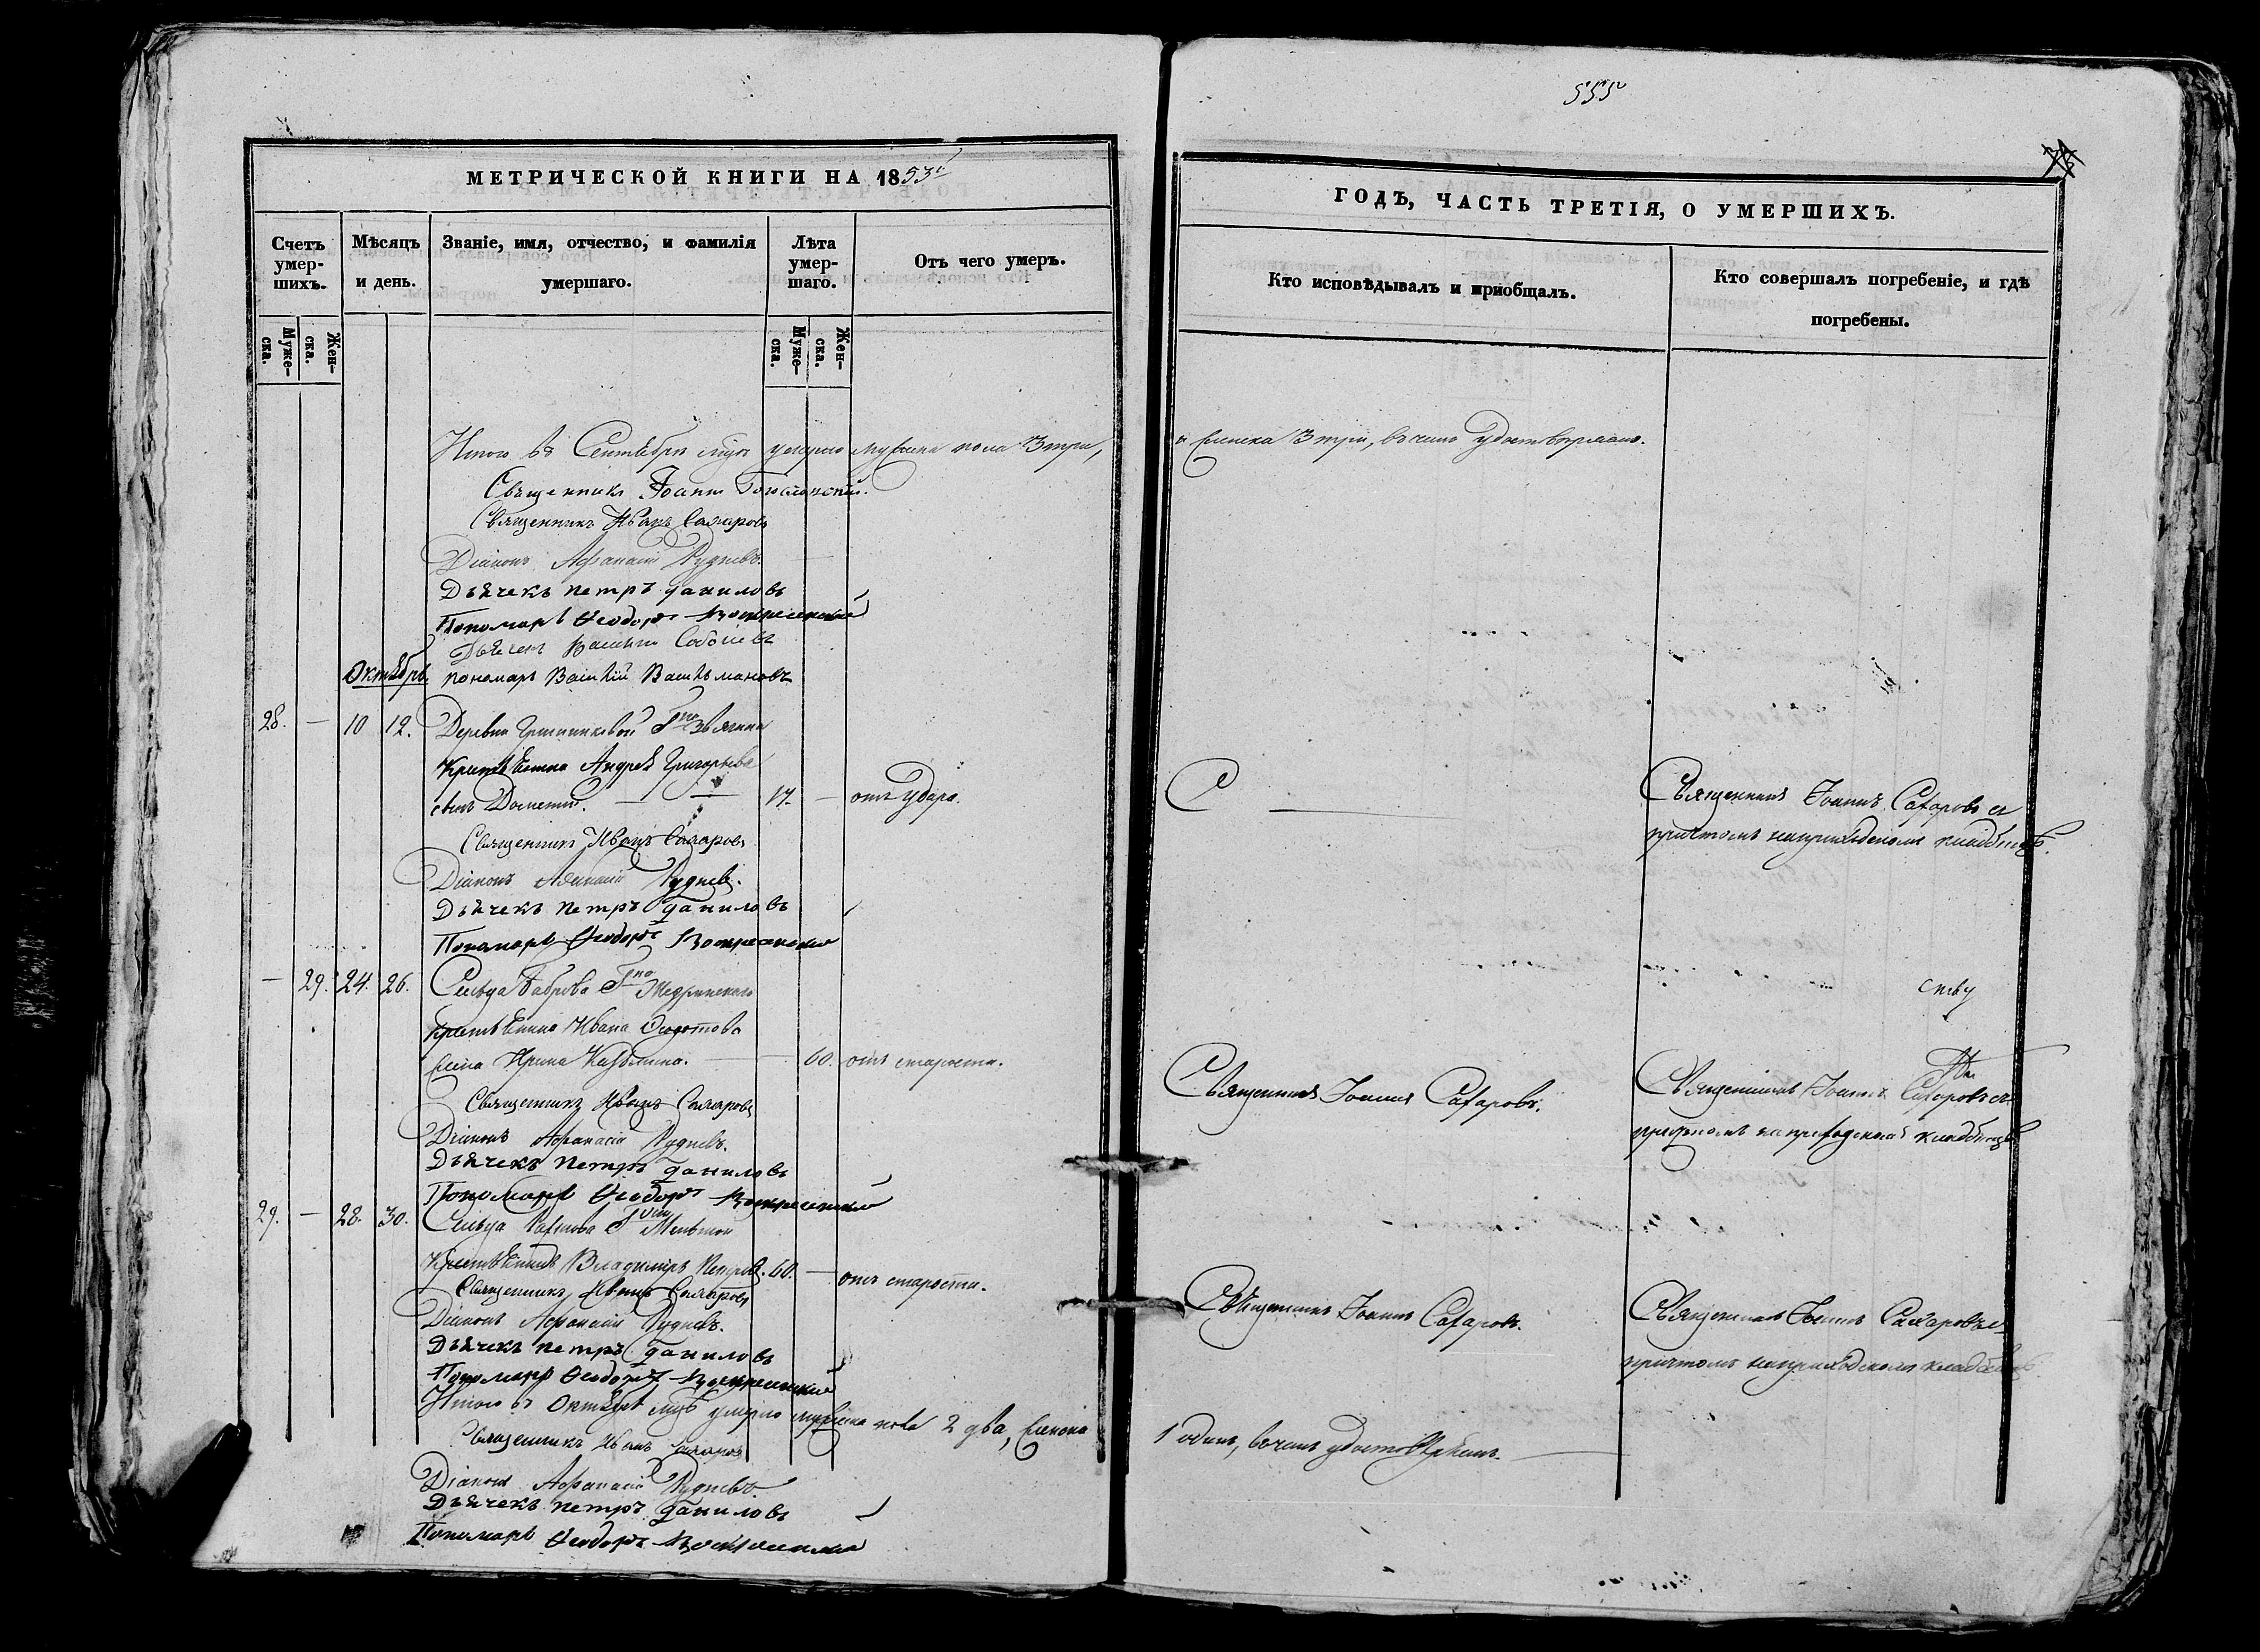 555
МЕТРИЧЕСКОЙ КНИГИ НА 1853й
ГОДЪ, ЧАСТЬ ТРЕТІЯ, О УМЕРШИХЪ.
Счетъ умер-
шихъ.
Мѣсяцъ
и день.
Званіе, имя, отчество, и фамилія
умершаго.
Лѣта
умер-
шаго.
Отъ чего умеръ.
Кто исповѣдывалъ и пріобщалъ.
Кто совершалъ погребеніе, и гдѣ
погребены.
Муже-
ска.
Жен-
ска.
Муже-
ска.
Жен-
ска.
Итого въ Сентябрѣ умерло мужеска пола 3 три,
и женска 3 три, въ чемъ удостовѣряемъ.
Священникъ Іоаннъ
Священникъ Иванъ Сахаровъ
Діаконъ Афанасій Рудневъ.
Дьячекъ петръ даниловъ
Пономарь Ѳеодоръ Воскресенскій
Дьячекъ Соболевъ
Октябрь.
пономарь Василій
28. — 10 12. Деревни Гпо Звягина
Крестьянина Андрея Григорьева
сынъ Дометій. — 17. — отъ удара.
Священникъ Іоаннъ Сахаровъ съ
причтомъ на приходскомъ кладбищѣ.
Священникъ Иванъ Сахаровъ
Діаконъ Афанасій Рудневъ.
Дьячекъ петръ даниловъ
Пономарь Ѳеодоръ Воскресенскій
— 29. 24. 26. Сельца Боброва Гпо
крестьянина Ивана Ѳедотова
жена Ирина Козьмина. — 60. отъ старости.
Священникъ Іоаннъ Сахаровъ.
Священникъ Іоаннъ Сахаровъ съ
причтомъ на приходскомъ кладбищѣ
Священникъ Иванъ Сахаровъ
Діаконъ Афанасій Рудневъ.
Дьячекъ петръ даниловъ
Пономарь Ѳеодоръ Воскресенскій
29. — 28. 30. Сельца
Крестьянинъ Владимиръ Петровъ. 60. — отъ старости.
Священникъ Іоаннъ Сахаровъ.
Священникъ Іоаннъ Сахаровъ съ
причтомъ на приходскомъ кладбищѣ
Священникъ Иванъ Сахаровъ
Діаконъ Афанасій Рудневъ.
Дьячекъ петръ даниловъ
Пономарь Ѳеодоръ Воскресенскій
Итого въ Октябрѣ умерло мужеска пола 2 два, женска
1 одинъ, въ чемъ удостовѣряемъ.
Священникъ Иванъ Сахаровъ
Діаконъ Афанасій Рудневъ.
Дьячекъ петръ даниловъ
Пономарь Ѳеодоръ Воскресенскій